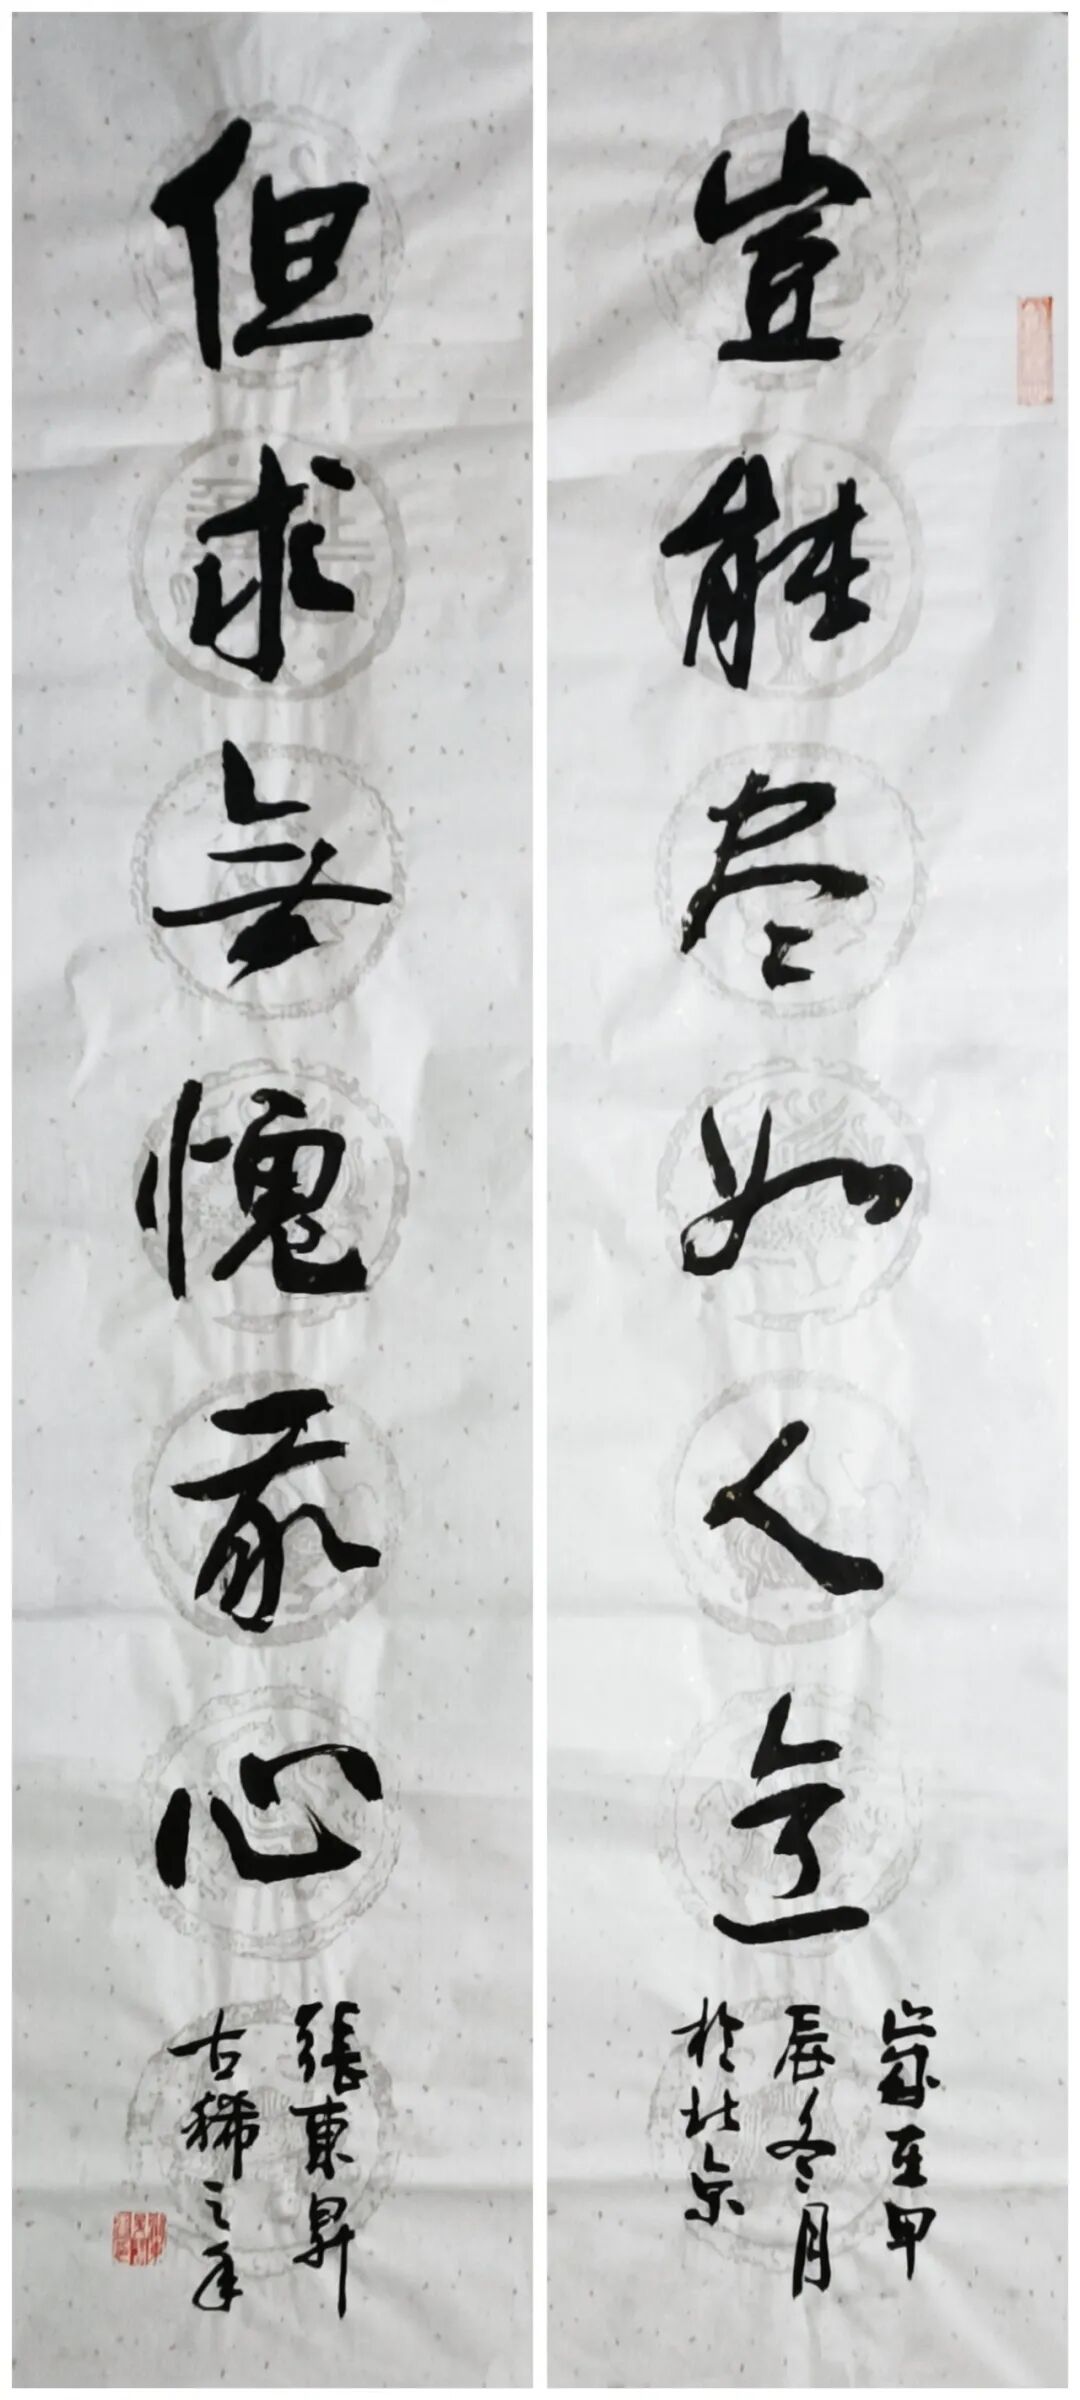 豈能尽如人意
歲在甲
辰冬月
於北京
但求無愧我心
張東昇
古稀之年